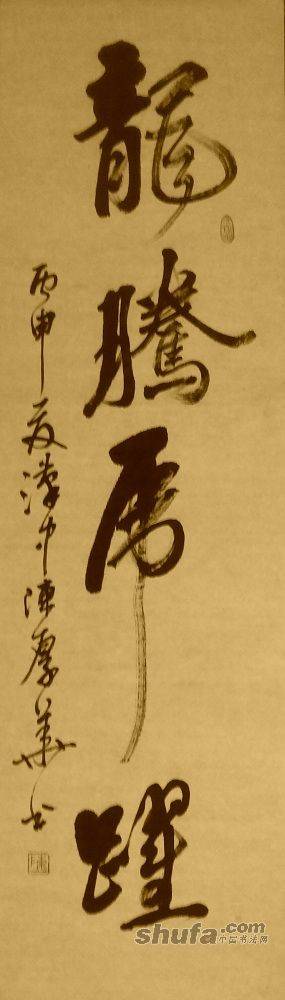 龍騰虎躍
丙申夏漢中陳厚華書
shufa.com
中国书法网